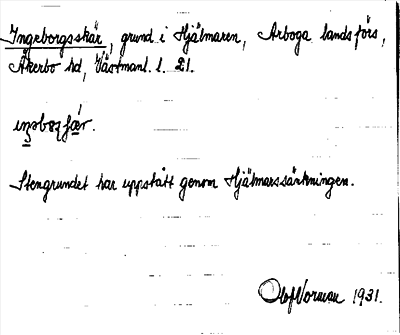 Ingeborgsskär, grund i Hjälmaren, Arboga landsförs,
Åkerbo hd, Västmanl. l. 21.
Stengrundet har uppstått genom Hjälmarssänkningen.
Olof Norman 1931.